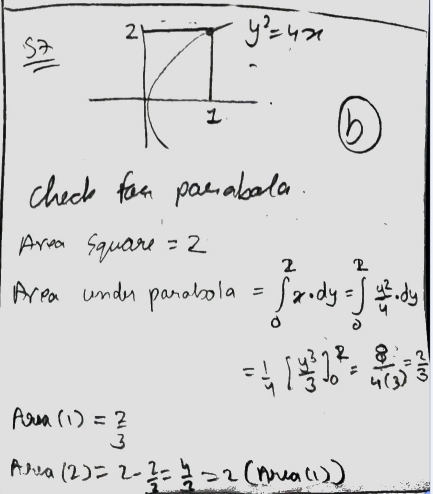 57
2
y² = 4x
1
b
check for parabola.
Area Square = 2
Area under parabola = ∫₀² x.dy = ∫₀² y²/4 .dy
= 1/4 [y³/3]₀² = 8/4(3) = 2/3
Area (1) = 2/3
Area (2) = 2 - 2/3 = 4/3 = 2 (Area(1))